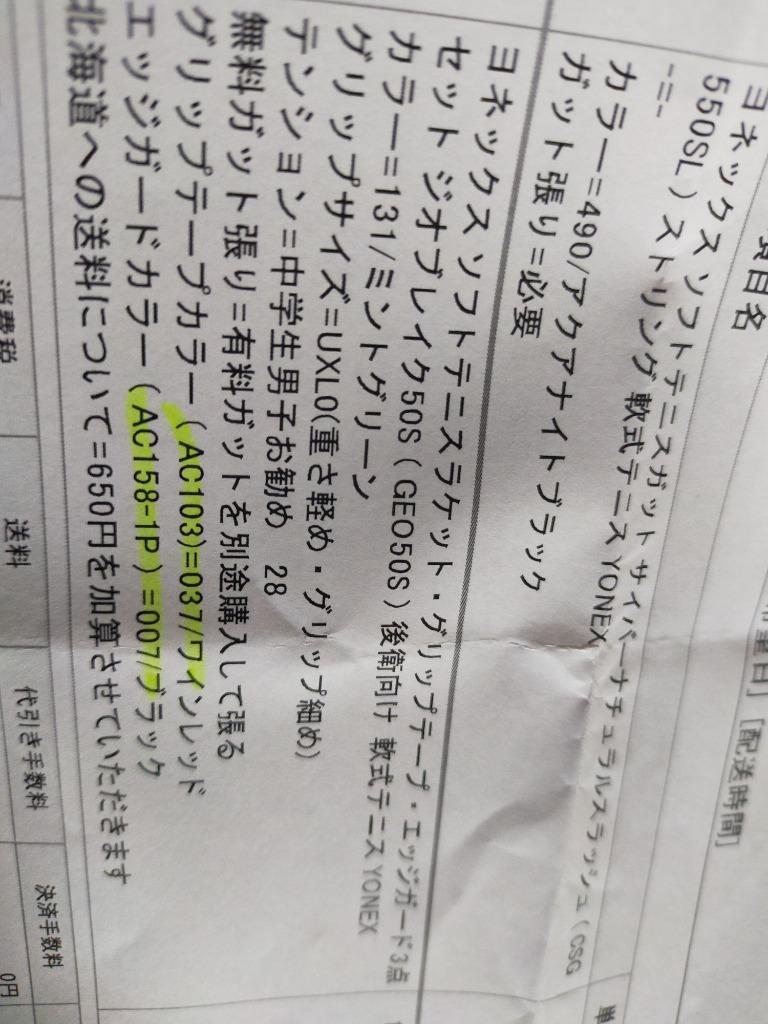 希望日] [配送時間]
項目名
単
ヨネックス ソフトテニスガット サイバーナチュラルスラッシュ (CSG
550SL ) ストリング 軟式テニス YONEX
-=-
カラー=490/アクアナイトブラック
ガット張り=必要
ヨネックス ソフトテニスラケット・グリップテープ・エッジガード3点
セット ジオブレイク50S ( GEO50S ) 後衛向け 軟式テニス YONEX
カラー=131/ミントグリーン
グリップサイズ=UXL0(重さ軽め・グリップ細め)
テンション=中学生男子お勧め 28
無料ガット張り=有料ガットを別途購入して張る
グリップテープカラー ( AC103)=037/ワインレッド
エッジガードカラー ( AC158-1P ) =007/ブラック
北海道への送料について=650円を加算させていただきます
消費税
送料
代引き手数料
決済手数料
0円